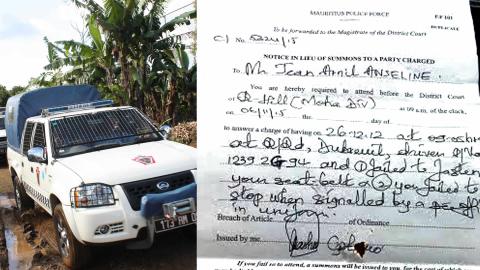 MAURITIUS POLICE FORCE
P.F 101
DUPLICATE
To be forwarded to the Magistrate of the District Court
C) No. 5324/15
NOTICE IN LIEU OF SUMMONS TO A PARTY CHARGED
To Mr Jean Anil ANSELINE.
You are hereby required to attend before the District Court
of R-Hill (Moka Div) at 09 a.m. of the clock,
on 06/11/15 the day of
to answer a charge of having on 26.12.12 at
at Dubreuil, driven
1239 94 and ① failed to fasten
your seat belt & ② you failed to
stop when signalled by a
in uniform.
Breach of Article of Ordinance
Issued by me
If you fail so to attend, a summons will be issued to you, for the cost of which
173 RM